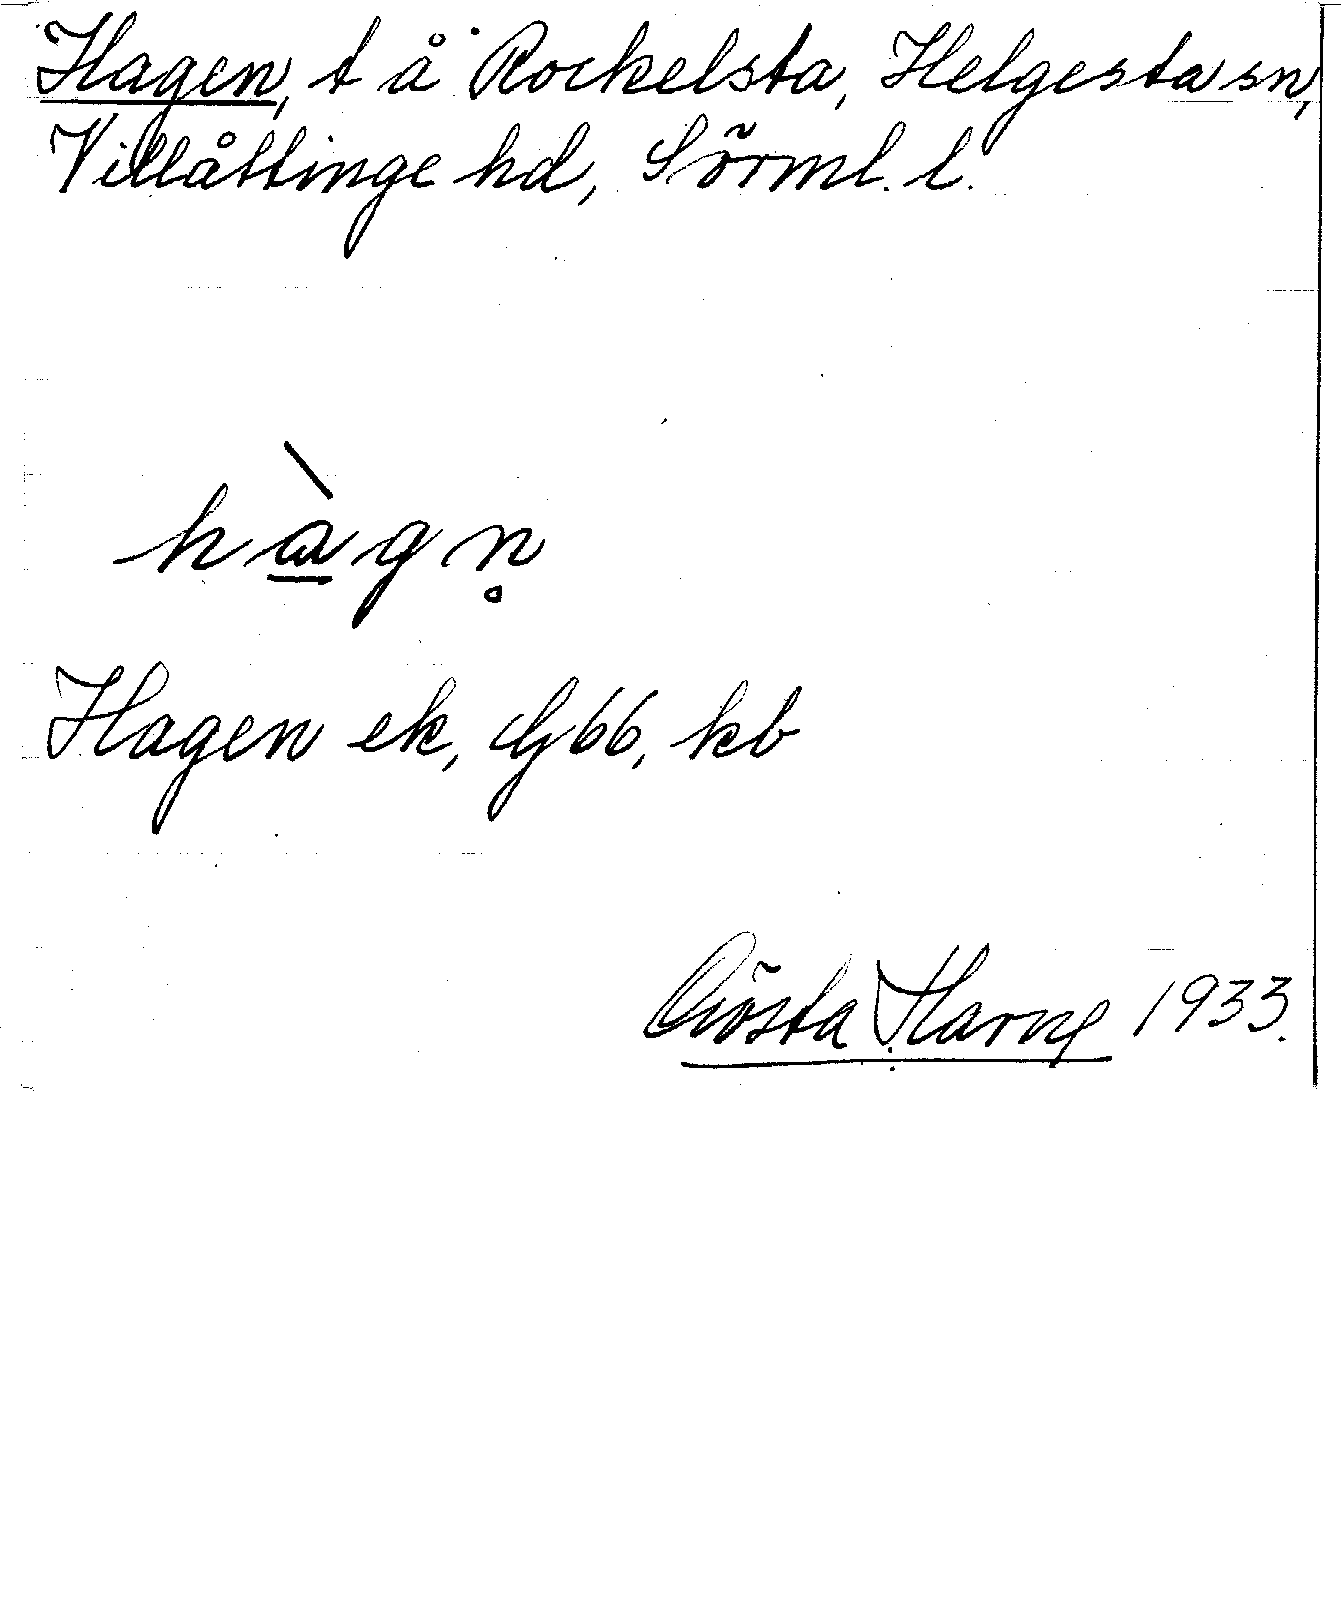 Hagen, t å Rockelsta, Helgesta sn,
Villåttinge hd, Sörml. l.
hàgn̥
Hagen ek, G 66, kb
Gösta Harne 1933.